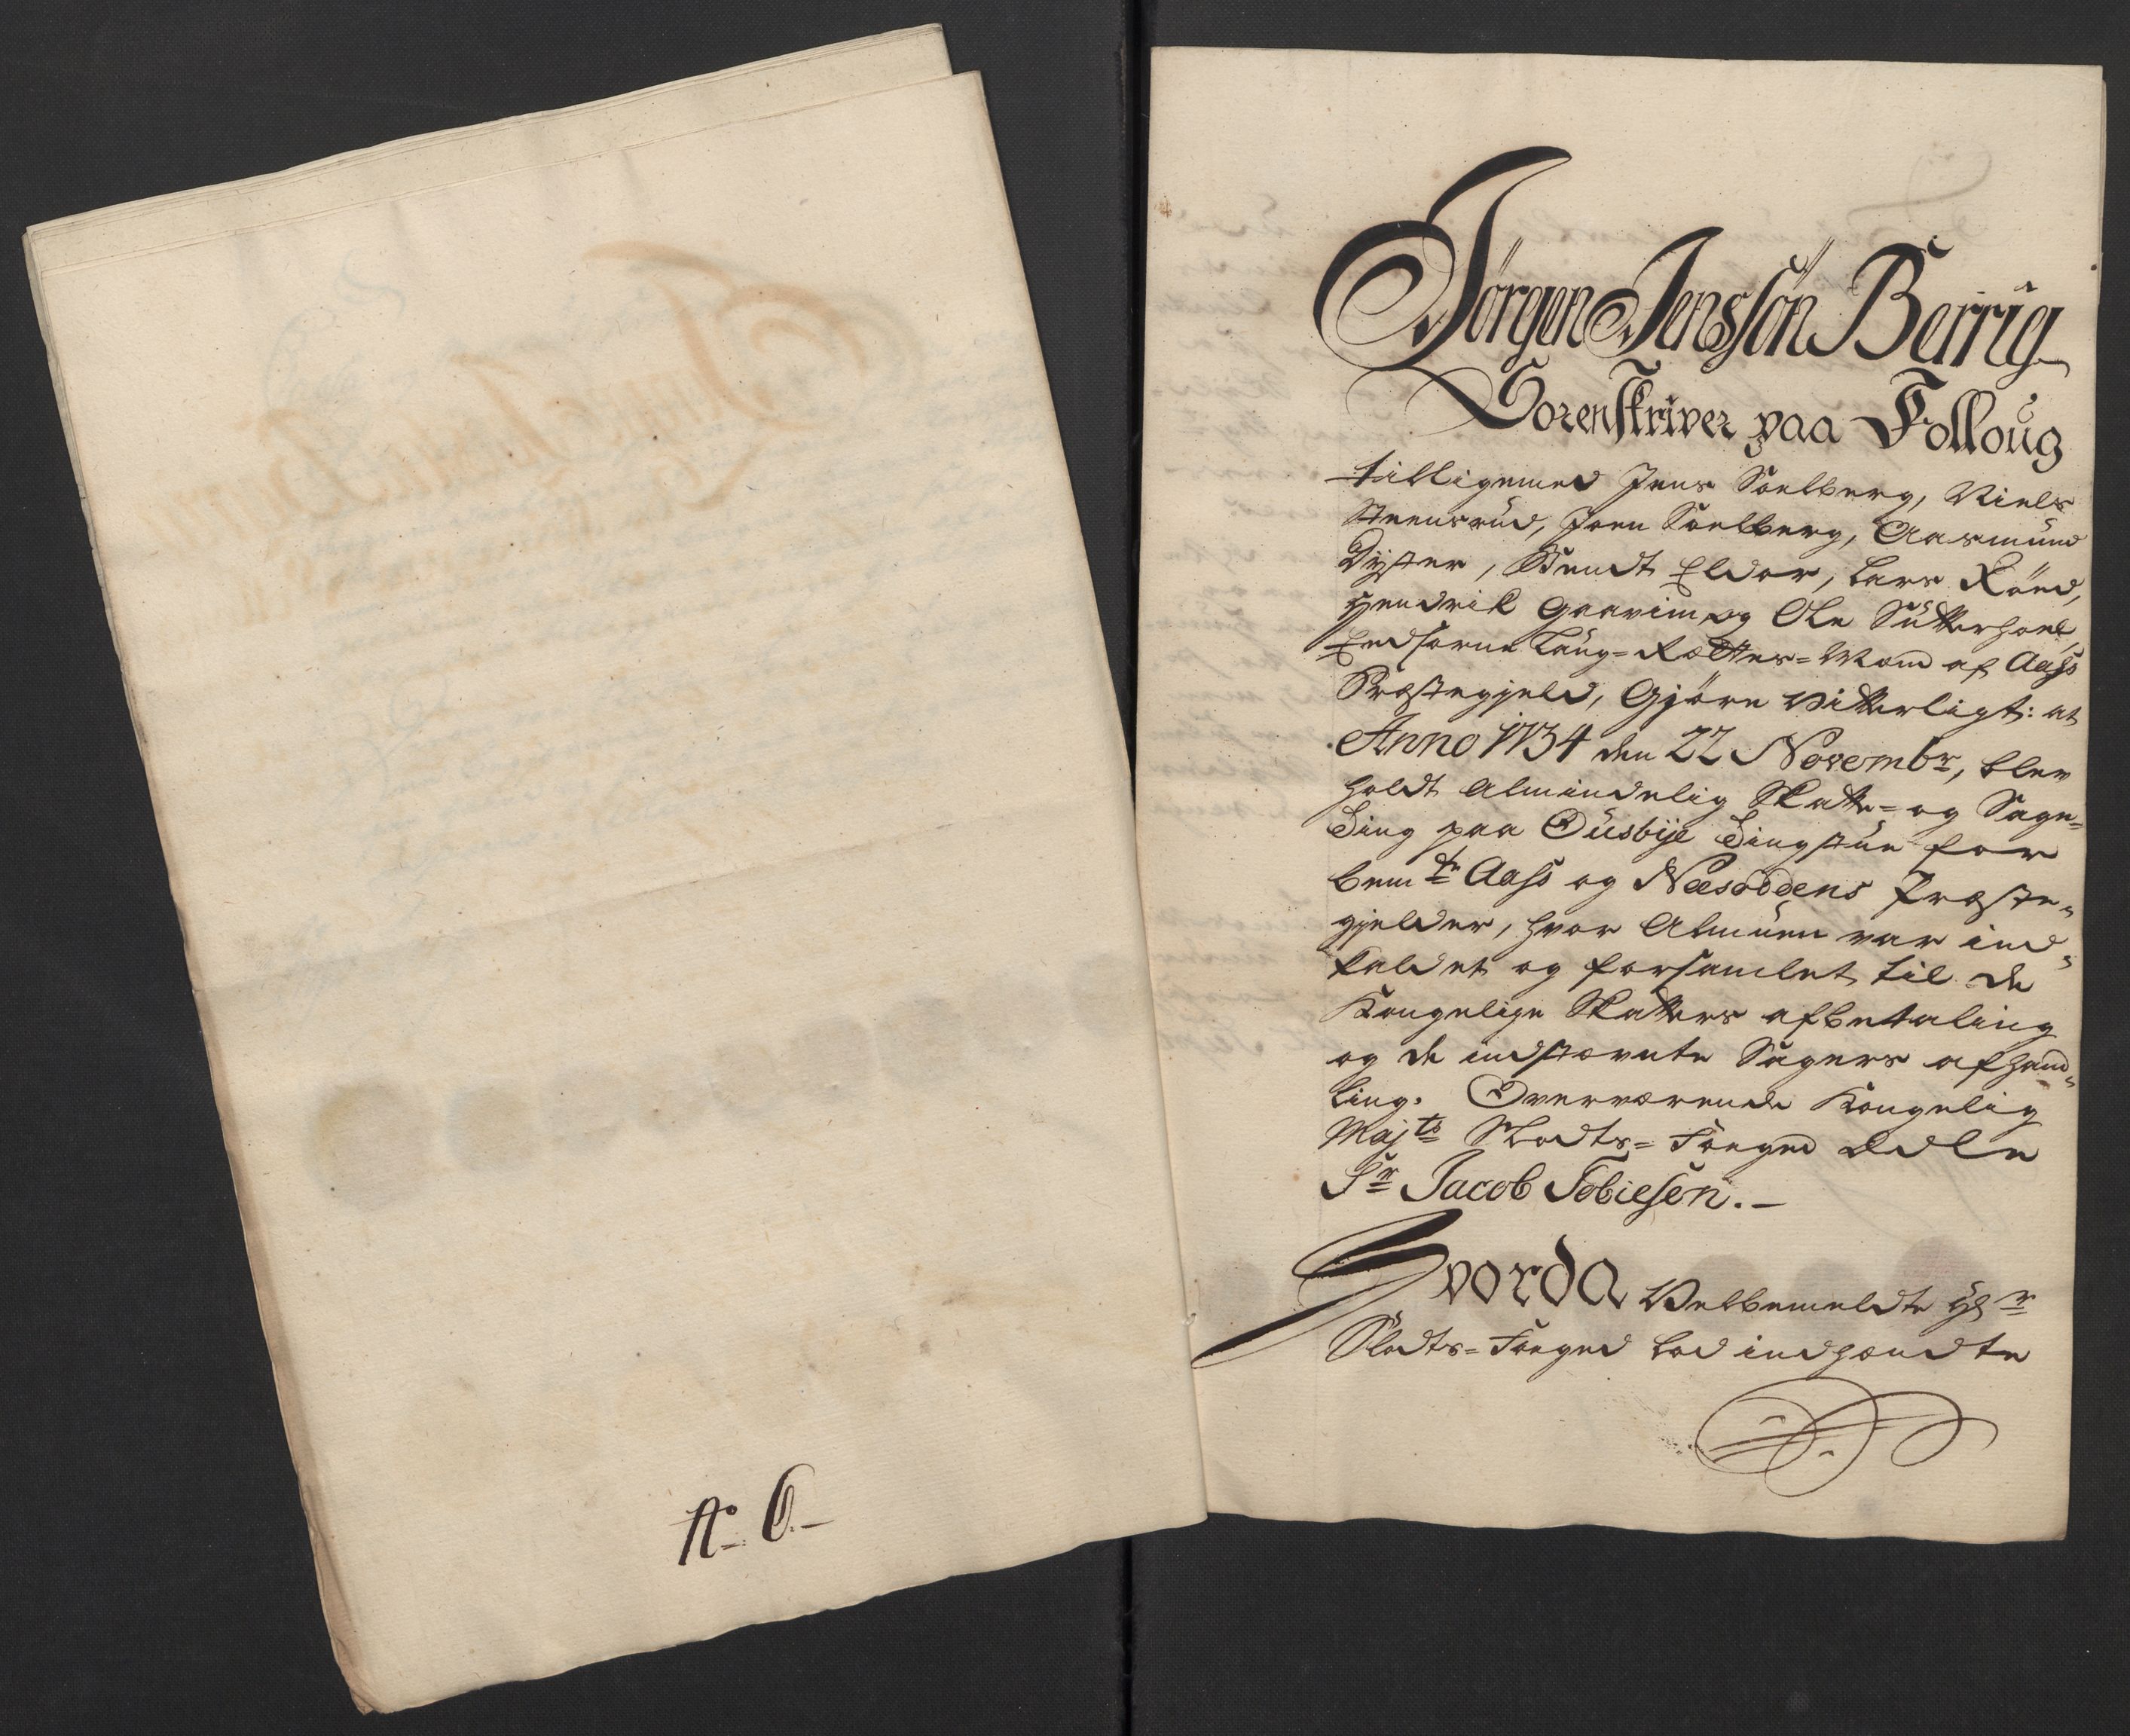 No 6.-
Jörgen Jenssön Berrig
Sorenskriver paa Folloug
tilligemed Jens Soelberg, Niels
Steensrud, Joen Soelberg, Aasmund
Dyster, Bendt Eldor, Lars Röed,
Hendrik Gaarim og Ole Sutterhoel,
Eedsorne Laug=Rettes=Mænd af Aass
Præstegjeld, Gjöre Vitterligt: at
Anno 1734 den 22 Novembr, blev
holdt Almindelig Skatte= og Sage=
Ting paa Ousbye Tingstue for
bemte Aass og Næsoddens Præste=
gjelder, hvor Almuen var ind=
kaldet og forsamlet til de
Kongelige Skatters afbetaling
og de indstævnte Sagers afhand=
ling. Overværende Kongelig
Majts Slodts=Foeged Edle
Sr Jacob Tobiesen.-
Hvorda Velbemeldte Hr
Slodts=Foeged lod indhændte